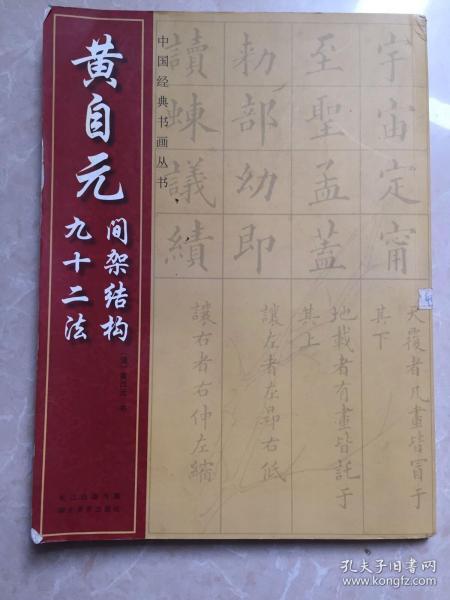 黄自元
间架结构
九十二法
中国经典书画丛书
宇宙定甯
至聖孟蓋
勑部幼即
讀蝀議績
天覆者凡畫皆冒于
其下
地載者有畫皆託于
其上
讓左者左昂右低
讓右者右伸左縮
孔夫子旧书网
www.kongfz.com